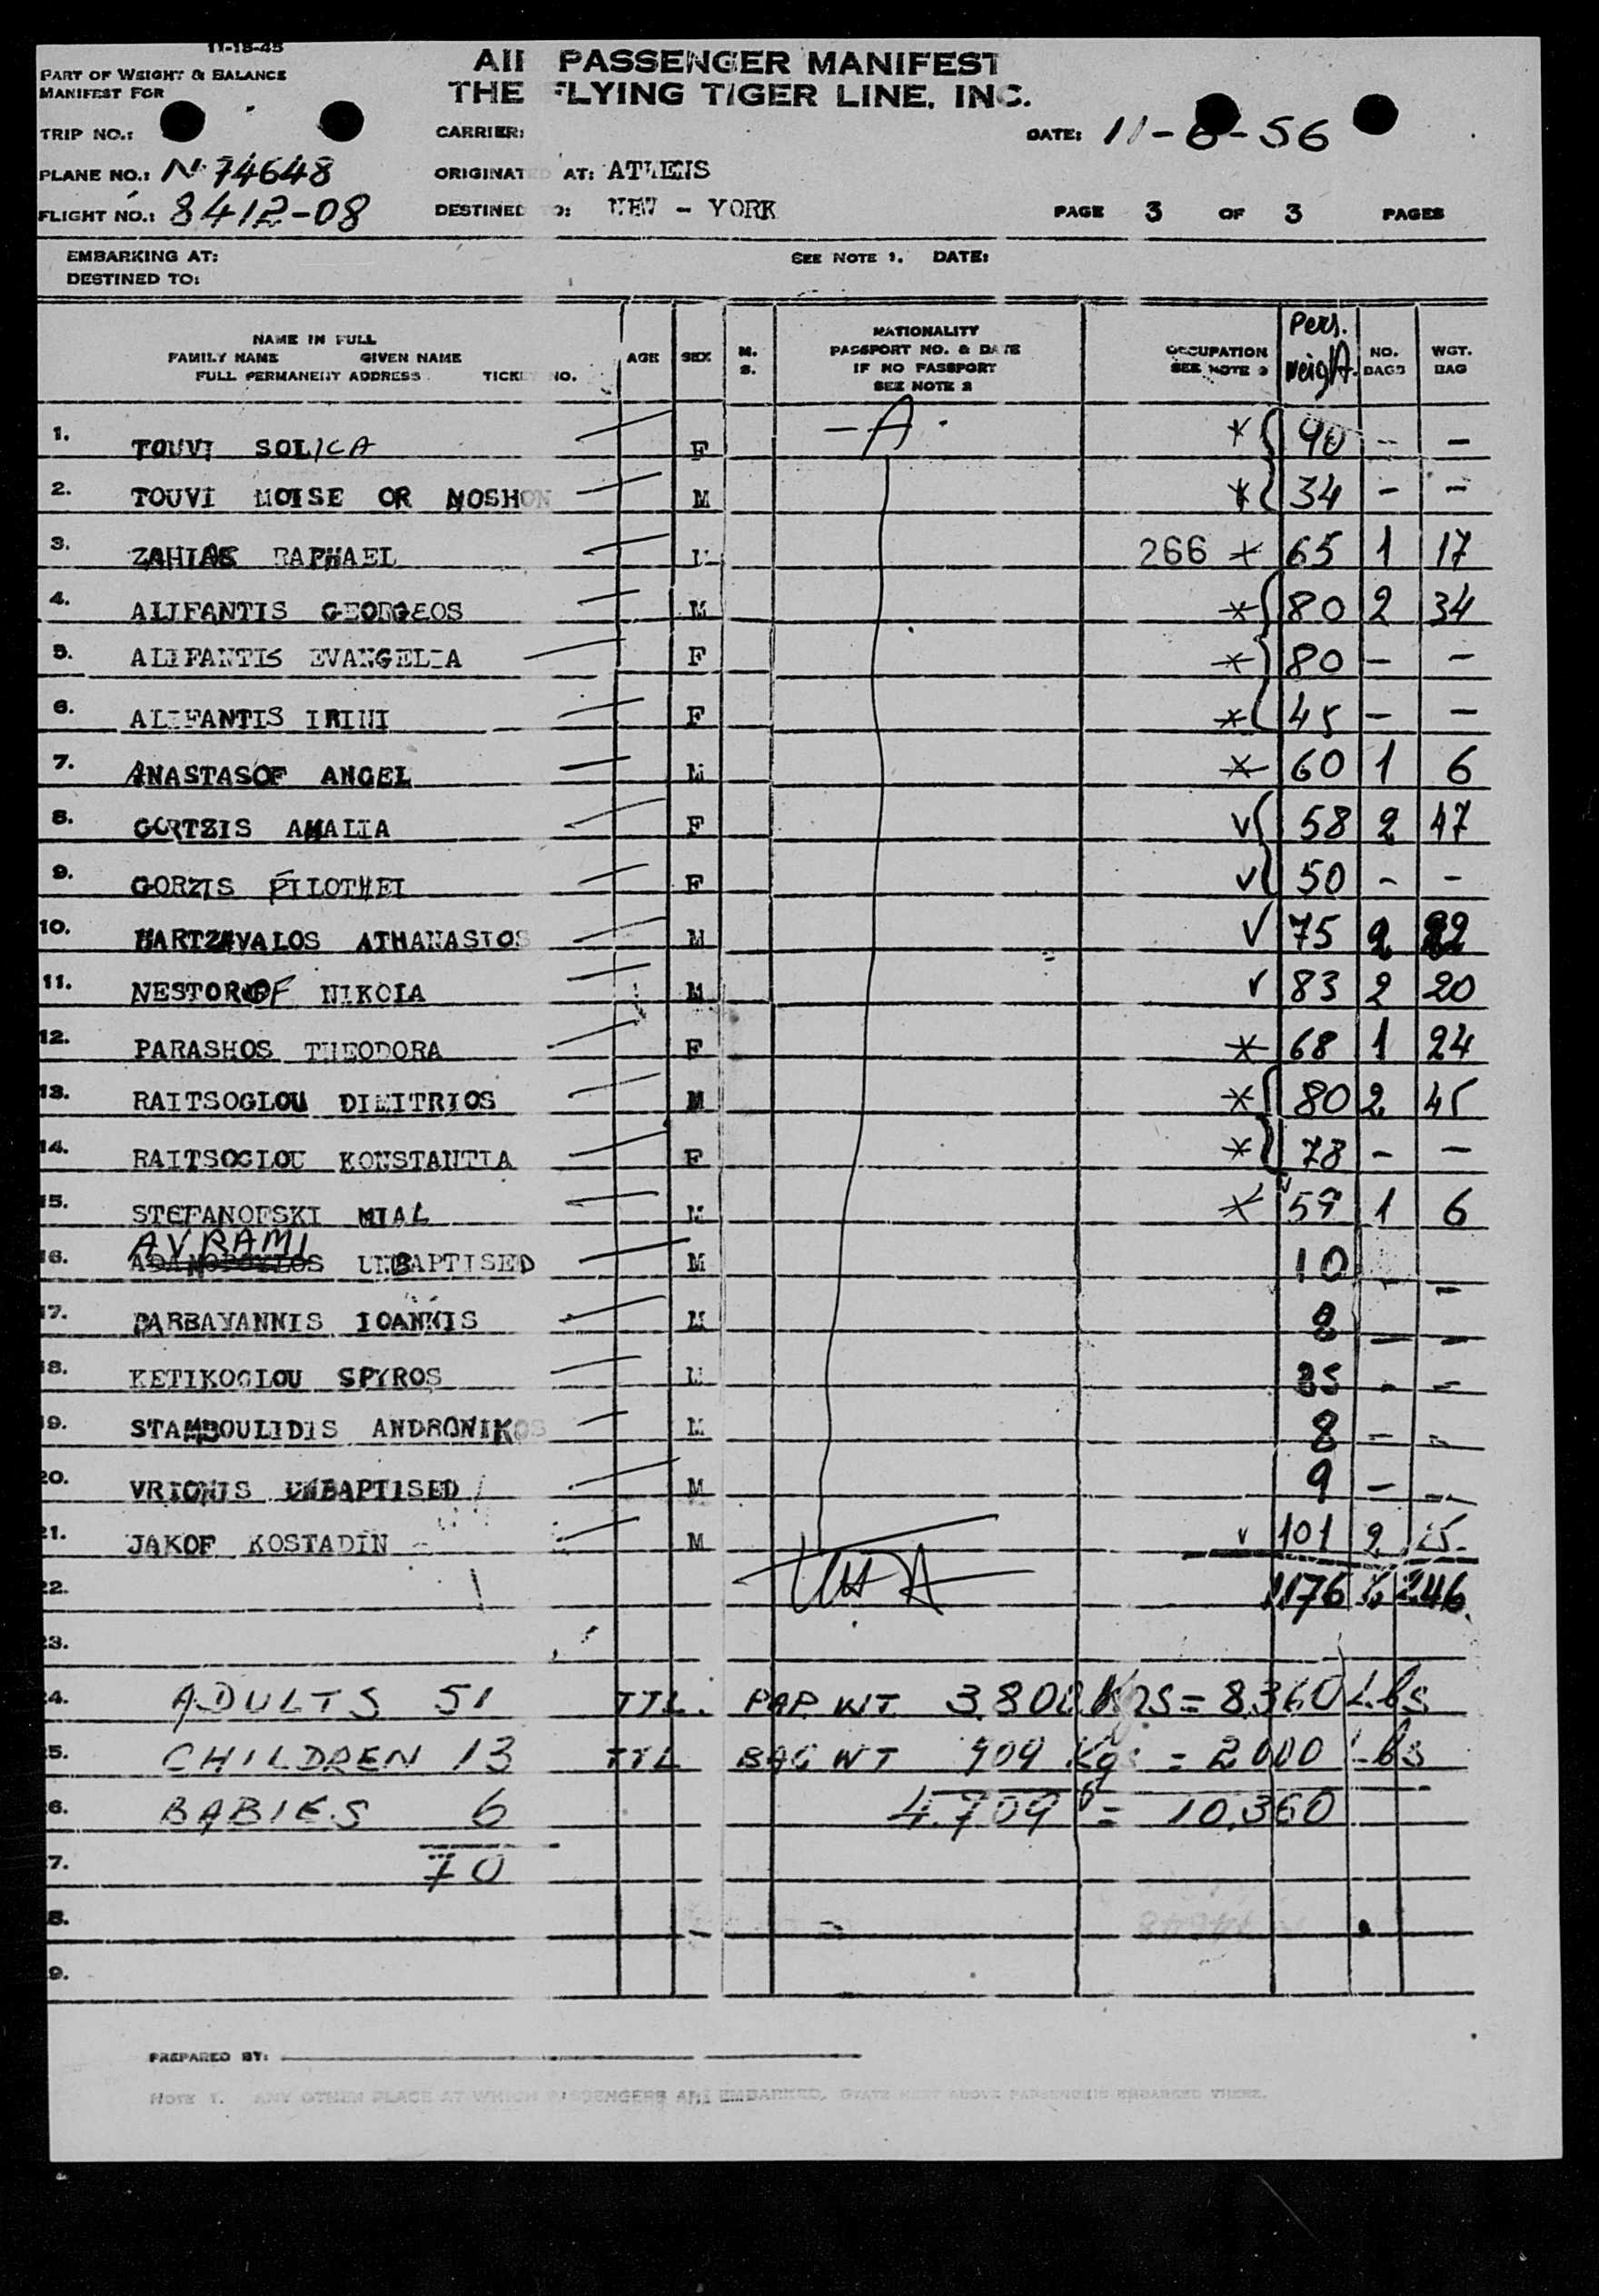 11-15-45
PART OF WEIGHT & BALANCE
MANIFEST FOR
AIR PASSENGER MANIFEST
THE FLYING TIGER LINE, INC.
TRIP NO.:
CARRIER:
DATE: 11-6-56
PLANE NO.: N-74648
ORIGINATED AT: ATHENS
FLIGHT NO.: 8412-08
DESTINED TO: NEW - YORK
PAGE 3 OF 3 PAGES
EMBARKING AT:
SEE NOTE 1. DATE:
DESTINED TO:
NAME IN FULL
FAMILY NAME GIVEN NAME
FULL PERMANENT ADDRESS. TICKET NO.
AGE SEX M. S.
NATIONALITY
PASSPORT NO. & DATE
IF NO PASSPORT
SEE NOTE 2
OCCUPATION
SEE NOTE 3
Pers. weight.
NO. BAGS
WGT. BAG
1. TOUVI SOLICA F -A- * 40 - -
2. TOUVI MOISE OR MOSHON M * 34 - -
3. ZAHIAS RAPHAEL M 266 * 65 1 17
4. ALIFANTIS GEORGEOS M * 80 2 34
5. ALIFANTIS EVANGELIA F * 80 - -
6. ALIFANTIS IRINI F * 45 - -
7. ANASTASOF ANGEL M * 60 1 6
8. GORTZIS AMALIA F V 58 2 47
9. GORZIS FILOTHEI F V 50 - -
10. HARTZAVALOS ATHANASIOS M V 75 2 22
11. NESTOROFF NIKOLA M V 83 2 20
12. PARASHOS THEODORA F * 68 1 24
13. RAITSOGLOU DIMITRIOS M * 80 2 45
14. RAITSOGLOU KONSTANTIA F * 78 - -
15. STEFANOFSKI MIAL M * 59 1 6
AVRAMI
16. ADAMOPOULOS UNBAPTISED M 10 - -
17. BARBAYANNIS IOANNIS M 8 - -
18. KETIKOGLOU SPYROS M 35 - -
19. STAMBOULIDIS ANDRONIKOS M 8 - -
20. VRIONIS UNBAPTISED M 9 - -
21. JAKOF KOSTADIN M V 101 2 25
22. 1176 246
23.
24. ADULTS 51 TTL. PAP WT. 3.800 Kgs = 8.360 Lbs
25. CHILDREN 13 TTL BAG WT 909 Kgs = 2000 Lbs
26. BABIES 6 4.709 = 10.360
27. 70
28.
29.
PREPARED BY:
NOTE 1. ANY OTHER PLACE AT WHICH PASSENGERS ARE EMBARKED, STATE NEXT ABOVE PASSENGERS EMBARKED THERE.